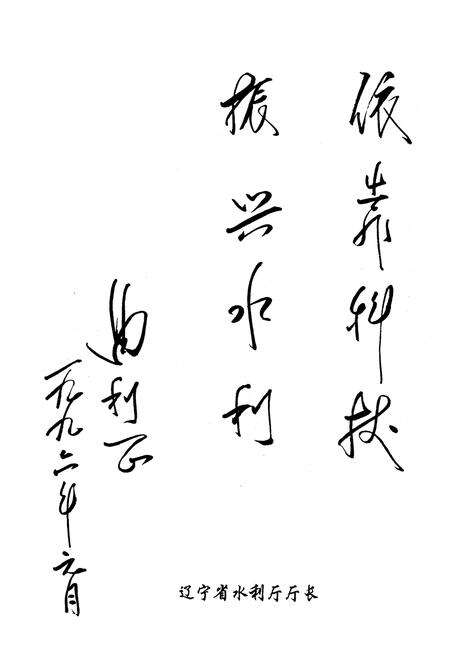 依靠科技
振兴水利
曲利正
一九九六年元月
辽宁省水利厅厅长